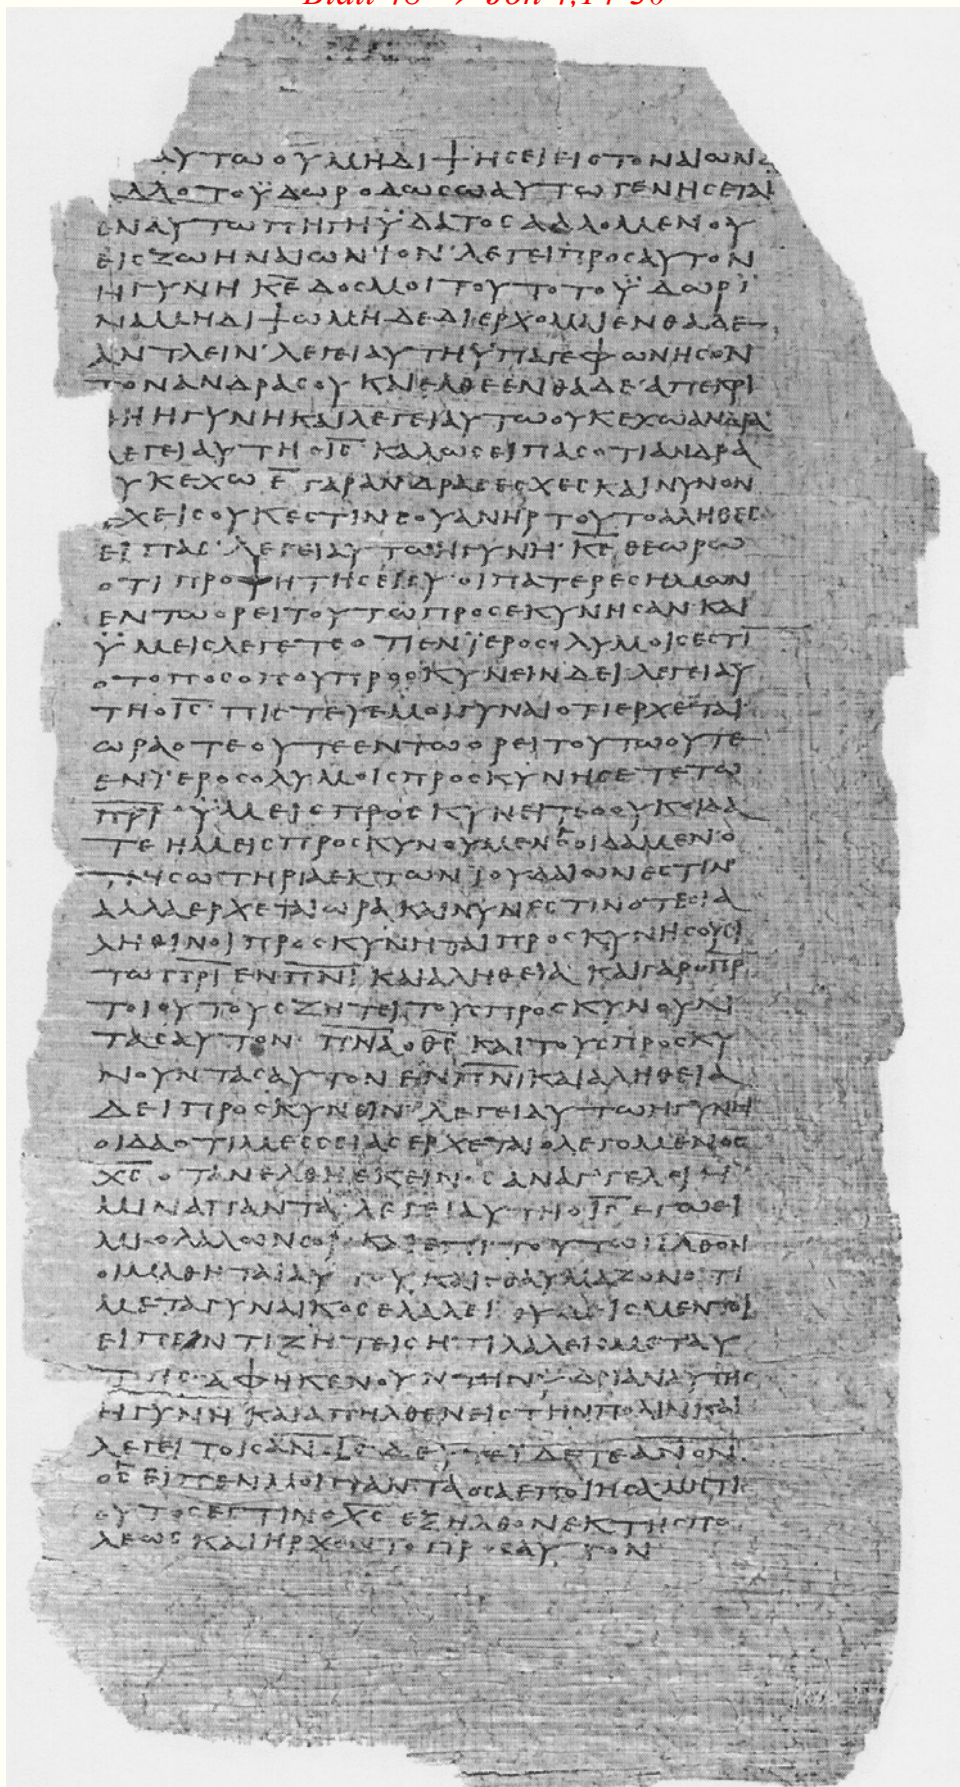 ΑΥΤΩ ΟΥ ΜΗ ΔΙΨΗCΕΙ ΕΙC ΤΟΝ ΑΙΩΝΑ
ΑΛΛΟ ΤΟ ΫΔΩΡ Ο ΔΩCΩ ΑΥΤΩ ΓΕΝΗCΕΤΑΙ
ΕΝ ΑΥΤΩ ΠΗΓΗ ΫΔΑΤΟC ΑΛΛΟΜΕΝΟΥ
ΕΙC ΖΩΗΝ ΑΙΩΝΙΟΝ· ΛΕΓΕΙ ΠΡΟC ΑΥΤΟΝ
Η ΓΥΝΗ Κ̅Ε̅ ΔΟC ΜΟΙ ΤΟΥΤΟ ΤΟ ΫΔΩΡ Ϊ
ΝΑ ΜΗ ΔΙΨΩ ΜΗΔΕ ΔΙΕΡΧΟΜΑΙ ΕΝΘΑΔΕ
ΑΝΤΛΕΙΝ· ΛΕΓΕΙ ΑΥΤΗ ΫΠΑΓΕ ΦΩΝΗCΟΝ
ΤΟΝ ΑΝΔΡΑ CΟΥ ΚΑΙ ΕΛΘΕ ΕΝΘΑΔΕ· ΑΠΕΚΡΙ
ΘΗ Η ΓΥΝΗ ΚΑΙ ΛΕΓΕΙ ΑΥΤΩ ΟΥΚ ΕΧΩ ΑΝΔΡΑ
ΛΕΓΕΙ ΑΥΤΗ Ο Ι̅C̅ ΚΑΛΩC ΕΙΠΑC ΟΤΙ ΑΝΔΡΑ
ΥΚ ΕΧΩ Ε̅ ΓΑΡ ΑΝΔΡΑC ΕCΧΕC ΚΑΙ ΝΥΝ ΟΝ
ΕΧΕΙC ΟΥΚ ΕCΤΙΝ CΟΥ ΑΝΗΡ ΤΟΥΤΟ ΑΛΗΘΕC
ΕΙΠΑC· ΛΕΓΕΙ ΑΥΤΩ Η ΓΥΝΗ· Κ̅Ε̅ ΘΕΩΡΩ
ΟΤΙ ΠΡΟΦΗΤΗC ΕΙ CΥ· ΟΙ ΠΑΤΕΡΕC ΗΜΩΝ
ΕΝ ΤΩ ΟΡΕΙ ΤΟΥΤΩ ΠΡΟCΕΚΥΝΗCΑΝ ΚΑΙ
ΫΜΕΙC ΛΕΓΕΤΕ ΟΤΙ ΕΝ ΪΕΡΟCΟΛΥΜΟΙC ΕCΤΙ
Ο ΤΟΠΟC ΟΠΟΥ ΠΡΟCΚΥΝΕΙΝ ΔΕΙ ΛΕΓΕΙ ΑΥ
ΤΗ Ο Ι̅C̅· ΠΙCΤΕΥΕ ΜΟΙ ΓΥΝΑΙ ΟΤΙ ΕΡΧΕΤΑΙ
ΩΡΑ ΟΤΕ ΟΥΤΕ ΕΝ ΤΩ ΟΡΕΙ ΤΟΥΤΩ ΟΥΤΕ
ΕΝ ΪΕΡΟCΟΛΥΜΟΙC ΠΡΟCΚΥΝΗCΕΤΕ ΤΩ
Π̅Ρ̅Ι̅· ΫΜΕΙC ΠΡΟCΚΥΝΕΙΤΕ Ο ΟΥΚ ΟΙΔΑ
ΤΕ ΗΜΕΙC ΠΡΟCΚΥΝΟΥΜΕΝ Ο ΟΙΔΑΜΕΝ Ο
ΤΙ Η CΩΤΗΡΙΑ ΕΚ ΤΩΝ ΙΟΥΔΑΙΩΝ ΕCΤΙΝ
ΑΛΛΑ ΕΡΧΕΤΑΙ ΩΡΑ ΚΑΙ ΝΥΝ ΕCΤΙΝ ΟΤΕ ΟΙ Α
ΛΗΘΙΝΟΙ ΠΡΟCΚΥΝΗΤΑΙ ΠΡΟCΚΥΝΗCΟΥCΙ
ΤΩ Π̅Ρ̅Ι̅ ΕΝ Π̅Ν̅Ι̅ ΚΑΙ ΑΛΗΘΕΙΑ ΚΑΙ ΓΑΡ Ο Π̅Ρ̅
ΤΟΙΟΥΤΟΥC ΖΗΤΕΙ ΤΟΥC ΠΡΟCΚΥΝΟΥΝ
ΤΑC ΑΥΤΟΝ· Π̅Ν̅Α̅ Ο Θ̅C̅ ΚΑΙ ΤΟΥC ΠΡΟCΚΥ
ΝΟΥΝΤΑC ΑΥΤΟΝ ΕΝ Π̅Ν̅Ι̅ ΚΑΙ ΑΛΗΘΕΙΑ
ΔΕΙ ΠΡΟCΚΥΝΕΙΝ· ΛΕΓΕΙ ΑΥΤΩ Η ΓΥΝΗ
ΟΙΔΑ ΟΤΙ ΜΕCCΕΙΑC ΕΡΧΕΤΑΙ Ο ΛΕΓΟΜΕΝΟC
Χ̅C̅ ΟΤΑΝ ΕΛΘΗ ΕΚΕΙΝΟC ΑΝΑΓ'ΓΕΛΕΙ Η
ΜΙΝ ΑΠΑΝΤΑ· ΛΕΓΕΙ ΑΥΤΗ Ο Ι̅C̅ ΕΓΩ ΕΙ
ΜΙ Ο ΛΑΛΩΝ CΟΙ· ΚΑΙ ΕΠΙ ΤΟΥΤΩ ΗΛΘΟΝ
ΟΙ ΜΑΘΗΤΑΙ ΑΥΤΟΥ ΚΑΙ ΕΘΑΥΜΑΖΟΝ ΟΤΙ
ΜΕΤΑ ΓΥΝΑΙΚΟC ΕΛΑΛΕΙ ΟΥΔΕΙC ΜΕΝΤΟΙ
ΕΙΠΕΝ ΤΙ ΖΗΤΕΙC Η ΤΙ ΛΑΛΕΙC ΜΕΤ ΑΥ
ΤΗC· ΑΦΗΚΕΝ ΟΥΝ ΤΗΝ ΫΔΡΙΑΝ ΑΥΤΗC
Η ΓΥΝΗ ΚΑΙ ΑΠΗΛΘΕΝ ΕΙC ΤΗΝ ΠΟΛΙΝ ΚΑΙ
ΛΕΓΕΙ ΤΟΙC Α̅Ν̅Ο̅Ι̅C̅ ΔΕΥΤΕ ΪΔΕΤΕ Α̅Ν̅Ο̅Ν̅
ΟC ΕΙΠΕΝ ΜΟΙ ΠΑΝΤΑ ΟCΑ ΕΠΟΙΗCΑ· ΜΗΤΙ
ΟΥΤΟC ΕCΤΙΝ Ο Χ̅C̅ ΕΞΗΛΘΟΝ ΕΚ ΤΗC ΠΟ
ΛΕΩC ΚΑΙ ΗΡΧΟΝΤΟ ΠΡΟC ΑΥΤΟΝ